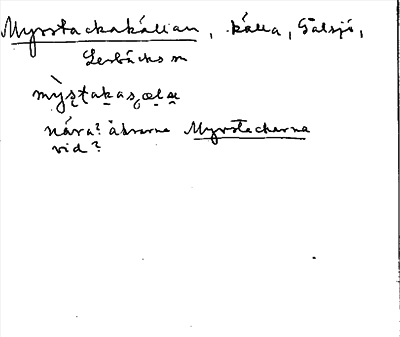 Myrstackakällan, källa, Galsjö,
Lerbäcks sn
mỳstakaçæla
nära? åkrarne Myrstackarna
vid?